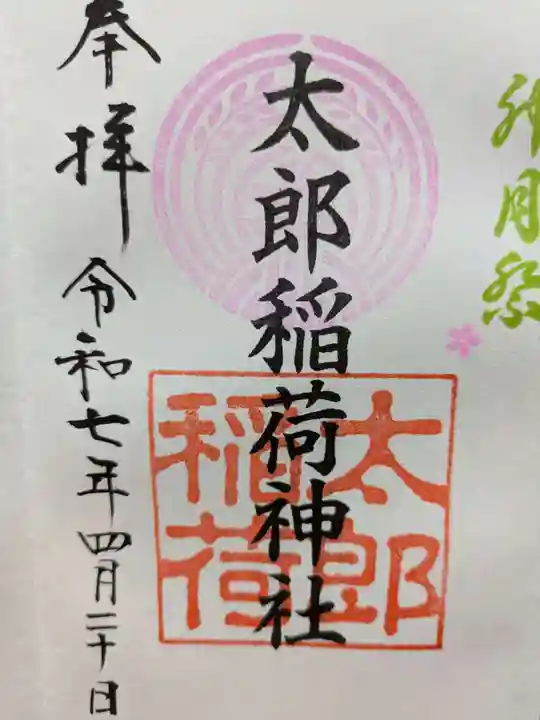 卯月祭
太郎稲荷神社
太郎
稲荷
奉拝 令和七年四月二十日